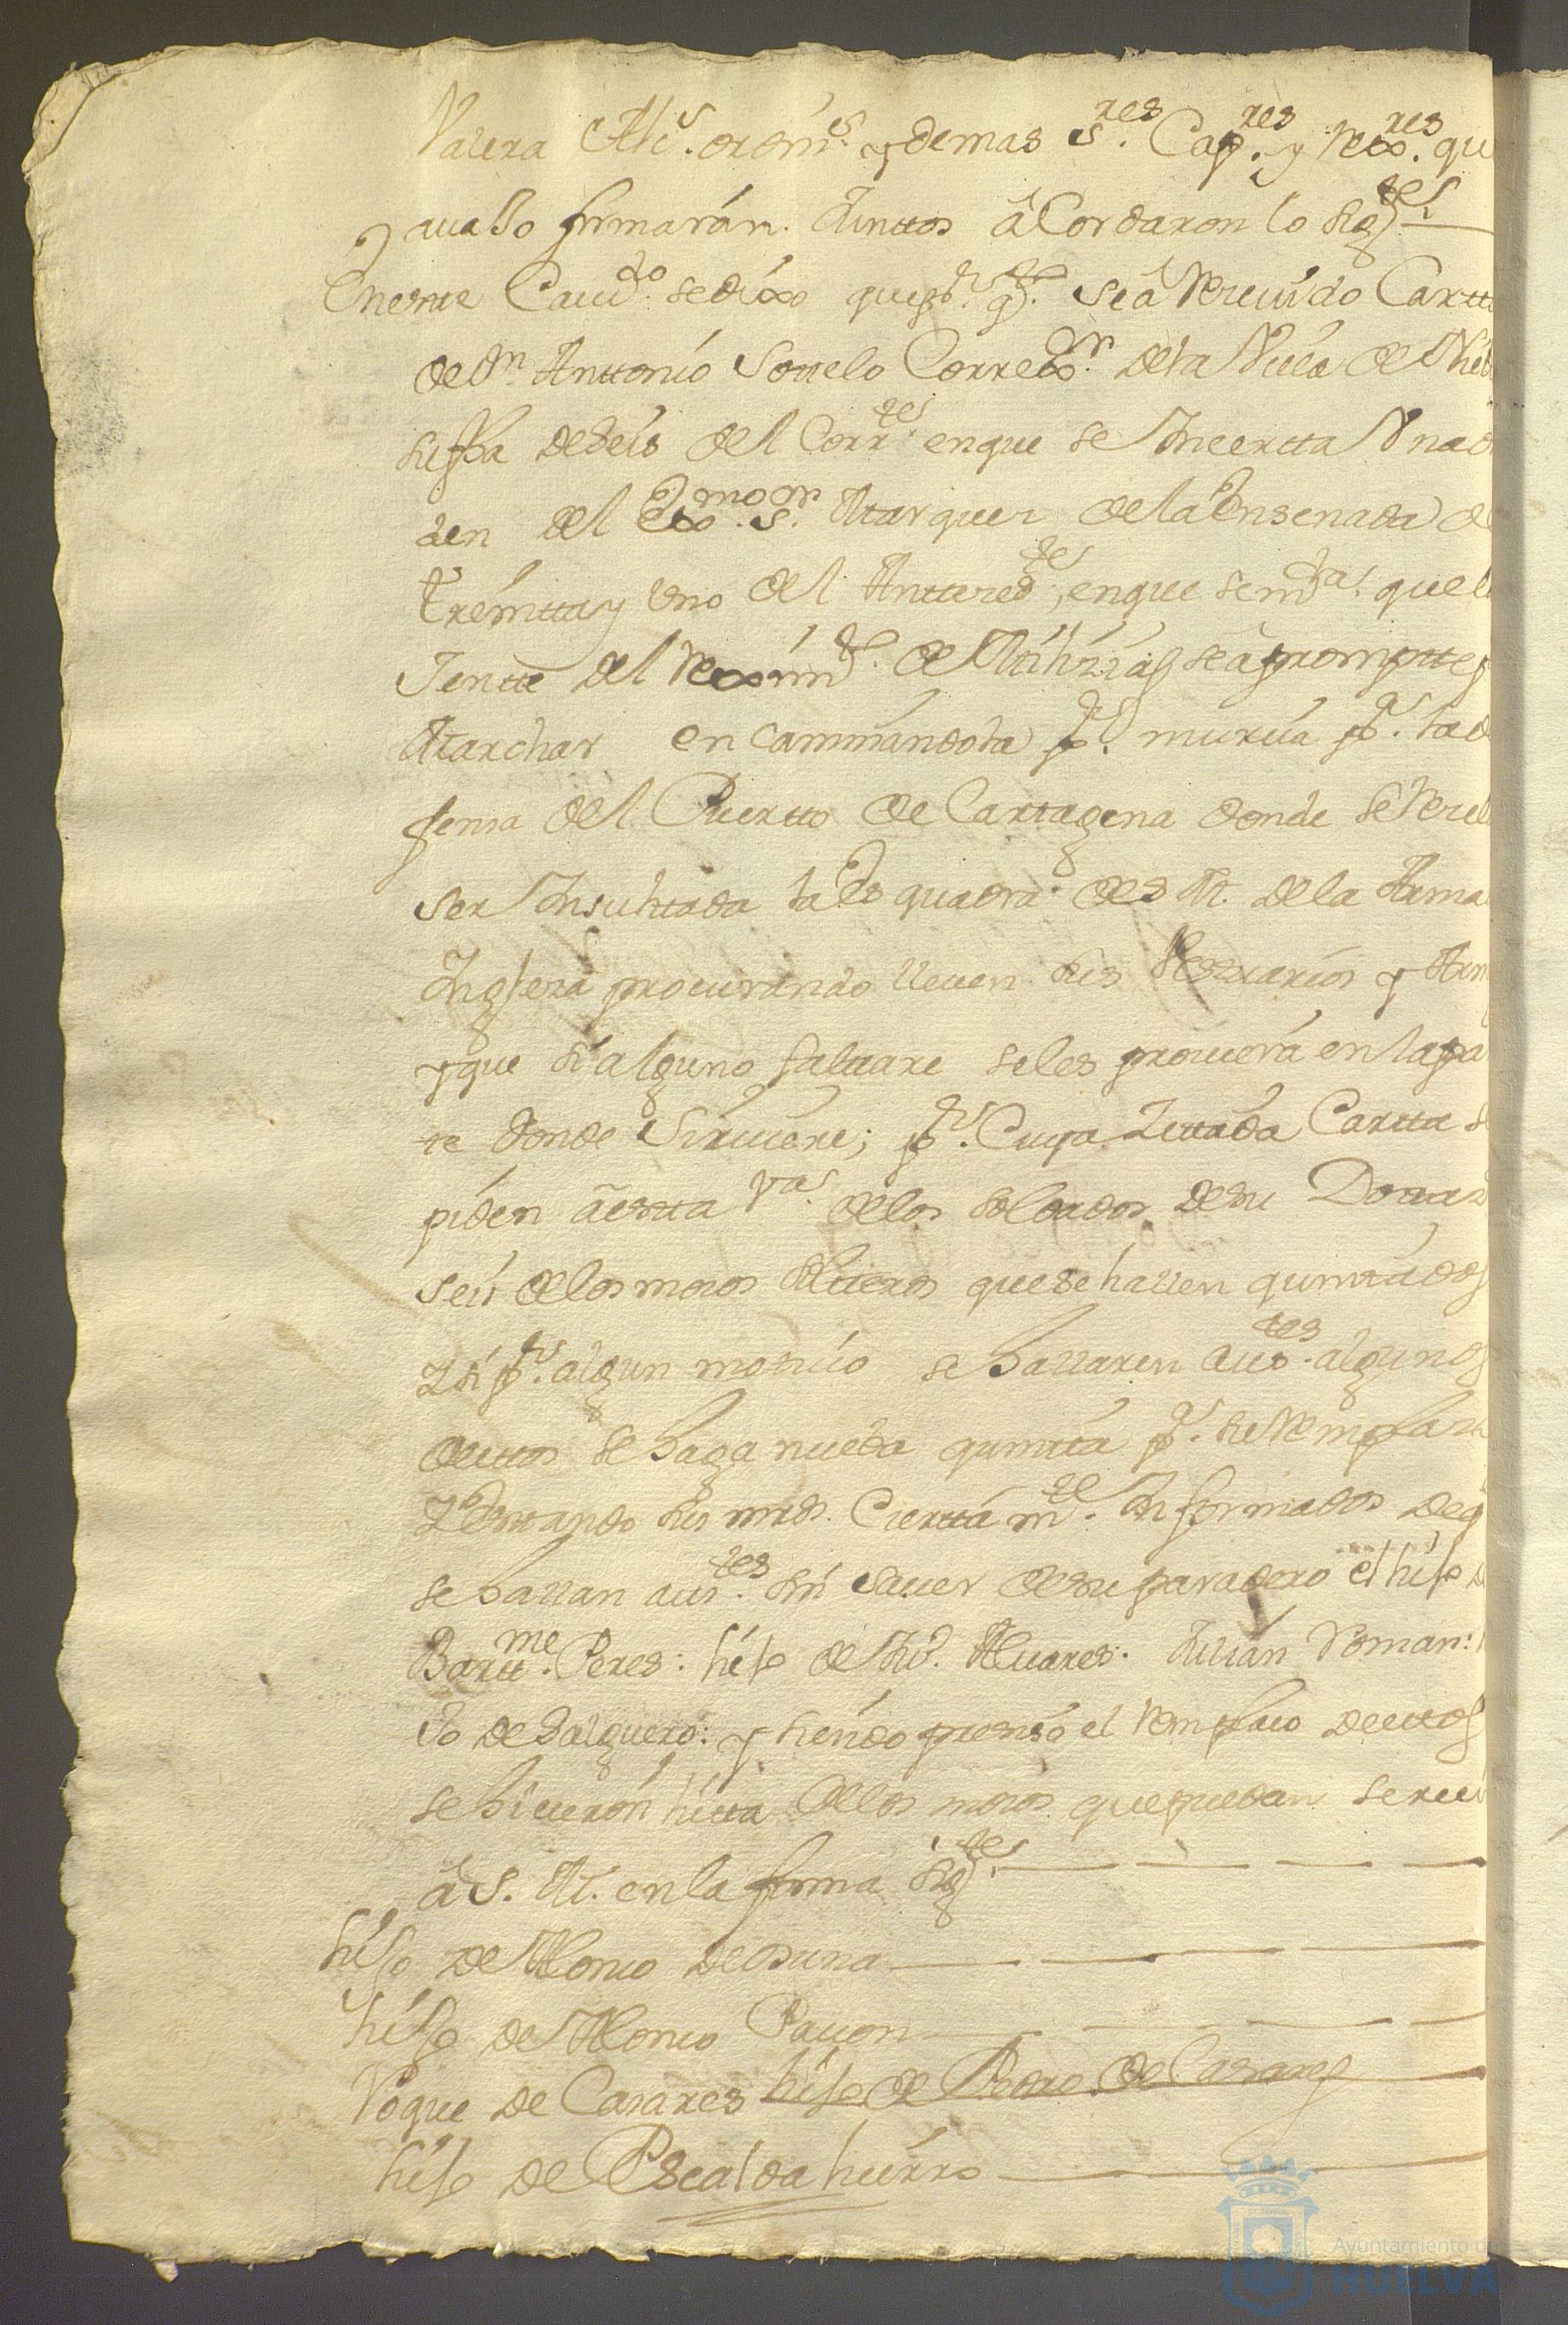 Valera Alc.s ordin.s y demas s.res Cap.res y Rex.res qu
y auajo firmarán. Junttos âCordaron lo sig.te
Enestte Cauı.do sedíxo quepr. q.to seâ Reciuido Cartt
de Dn. Anttonio Sottelo Correx.or dela Villa de Nieb
su ffha deseis del Corr.te enque se Incertta Vna or
den del Exmo. s.or Marques dela Ensenada de
treintta y Uno del Antteced.te, enque semda. quel
Jentte del Reximto. de Milizias seâ promptte p
Marchar encaminandola pr. murcia pa. lade
fensa del Puertto de Carttagena donde seRecel
ser Insulttada laEsquadra de S M. dela Arma
Inglesa procurando lleuen sus Vestuarios y Arm
yque si alguno faltare seles proueerá enlapar
te donde Siruiere; pr. Cuya Zittada Cartta se
piden âestta Va. delos soldados desu Dottaz
seis delosmosos soltteros quesehallen quinttados
Zsi pr. algun mottiuo sehallaren aus.tes algunos
deettos sehaga nueba quintta pa. suRemplazo
ZEsttando sus mrds. Ciertta m.te Informados deq
sehallan aus.tes sin sauer desu paradero el hijo d
Bartt.me Peres: hijo de Ju. Aluares. Julian Roman: 
Jo deSalguero: y siendo presiso el remplaso deestos
sehicieron listta delos mosos quepuedan seruir
â S. M. enla forma sig.te
hijo de Alonso deosuna
hijo de Alonso Pauon
Roque de Casares hijo de Pedro de Casares
hijo de Pscaldahierro
Ayuntamiento de
HUELVA